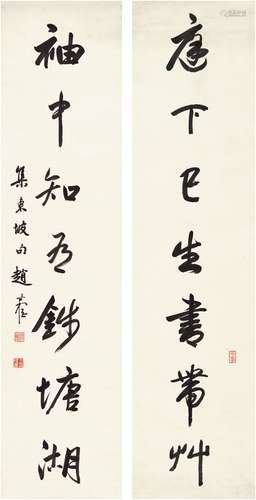 庭下已生書帶艸
袖中知有錢塘湖
集東坡句 趙